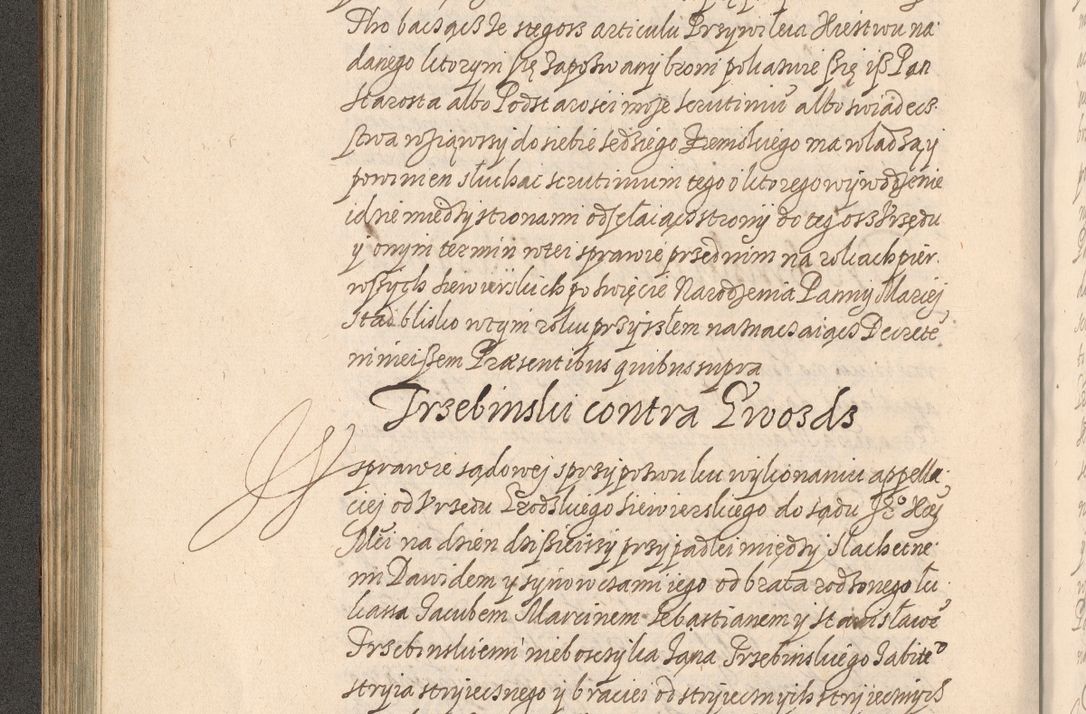 Tho bacząc że z tegoss articulu Przywileia Xiestwu na
danego ktorym się zapozwany broni pokazuie się iż Pan
Starosta albo Podstarosci moze scrutinium albo swiadecz
stwa wziąwszy do siebie sędziego Ziemskiego ma władzą y
powinien słuchac scrutinium tego o ktorego wywodzenie
idzie między stronami odsełaiąc strony do tegosz Vrzędu
y onym termin w tei sprawie przed nim na rokach pier
wszych siewierskich po swięcie Narodzenia Panny Mariej
stąd blisko w tym roku przyszłem naznaczaiąc Decrete
ninieiszem Præsentibus quibus supra
Trzebinski contra Gwozdz
W sprawie sądowej s przypozwu ku wykonaniu appella
ciej od Vrzędu Grodzkiego siewierskiego do sądu Je° Xiej
Mći na dzien dzisieiszy przypadłei między Slachetne
mi Dawidem y synowczami iego od brata rodzonego Łu
kasza Jacubem Marcinem Sebastianem y Stanisławē
Trzebinskiemi nieboszczyka Jana Trzebinskiego zabite°
stryia stryiecznego y braciei od stryiecznych stryiecznych